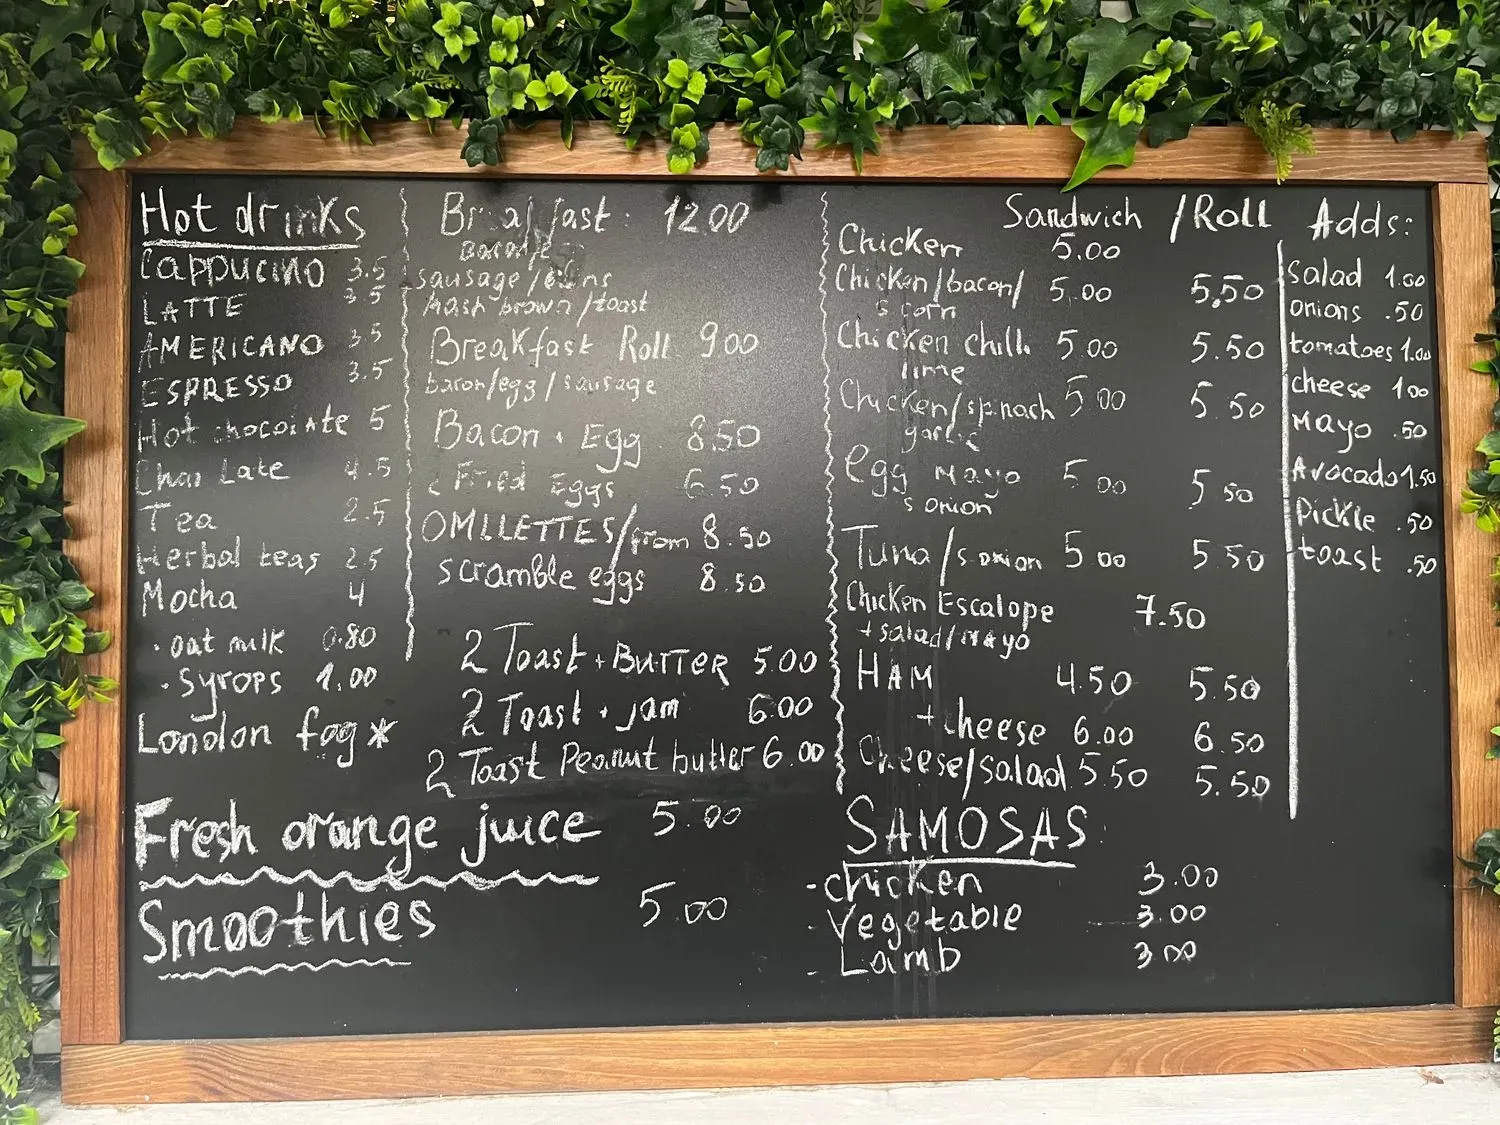 Hot drinks
Cappucino 3.5
LATTE 3.5
AMERICANO 3.5
ESPRESSO 3.5
Hot 5
Chai Late 4.5
Tea 2.5
Herbal teas 2.5
Mocha 4
· oat milk 0.80
· Syrops 1.00
London fog*
Fresh orange juice 5.00
Smoothies 5.00
Breakfast: 12.00
Bacon/
sausage/
hash brown/toast
Breakfast Roll 9.00
bacon/egg/sausage
Bacon + Egg 8.50
2 Fried Eggs 6.50
OMLLETTES/from 8.50
scramble eggs 8.50
2 Toast + Butter 5.00
2 Toast + jam 6.00
2 Toast Peanut butter 6.00
Sandwich / Roll
Chicken 5.00
Chicken/bacon/ 5.00 5.50
s corn
Chicken chilli 5.00 5.50
lime
Chicken/spinach 5.00 5.50
garlic
egg mayo 5.00 5.50
s onion
Tuna/s onion 5.00 5.50
Chicken Escalope 7.50
+ salad/mayo
HAM 4.50 5.50
+ cheese 6.00 6.50
Cheese/salad 5.50 5.50
SAMOSAS:
- chicken 3.00
- Vegetable 3.00
- Lamb 3.00
Adds:
Salad 1.00
onions .50
tomatoes 1.00
cheese 1.00
Mayo .50
Avocado 1.50
Pickle .50
toast .50